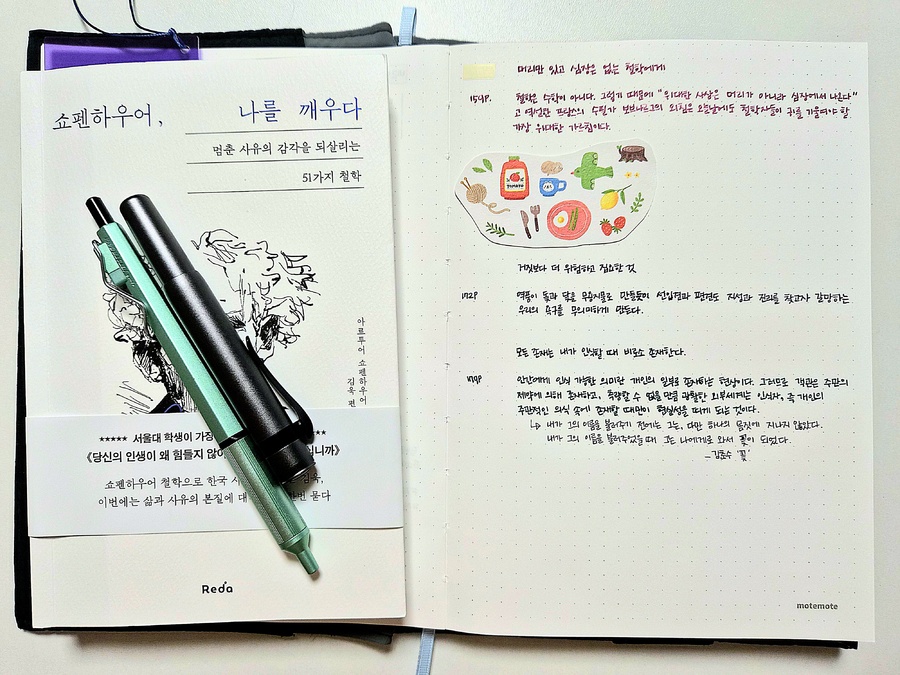 쇼펜하우어, 나를 깨우다
멈춘 사유의 감각을 되살리는
51가지 철학
아르투어 쇼펜하우어
김욱 편
★★★★★ 서울대 학생이 가장 ★★★
《당신의 인생이 왜 힘들지 않아 입니까》
쇼펜하우어 철학으로 한국 사 김욱,
이번에는 삶과 사유의 본질에 대 번 묻다
Reda
머리만 있고 심장은 없는 철학에게
159p. 철학은 수학이 아니다. 그렇기 때문에 "위대한 사상은 머리가 아니라 심장에서 나온다"
고 역설한 프랑스의 수필가 보브나르그의 외침은 오늘날에도 철학자들이 귀를 기울여야 할
가장 위대한 가르침이다.
TOMATO
거짓보다 더 위험하고 집요한 것
172p 역풍이 돛과 닻을 무용지물로 만들듯이 선입견과 편견도 지성과 진리를 찾고자 갈망하는
우리의 욕구를 무의미하게 만든다.
모든 존재는 내가 인식할 때 비로소 존재한다.
179p 인간에게 인식 가능한 의미란 개인의 일부로 존재하는 현상이다. 그러므로 객관은 주관의
제약에 의해 존재하고, 측량할 수 없을 만큼 광활한 외부세계는 인식자, 즉 개인의
주관적인 의식 속에 존재할 때만이 현실성을 띠게 되는 것이다.
↳ 내가 그의 이름을 불러주기 전에는 그는, 다만 하나의 몸짓에 지나지 않았다.
내가 그의 이름을 불러주었을 때 그는 나에게로 와서 꽃이 되었다.
— 김춘수 '꽃'
motemote